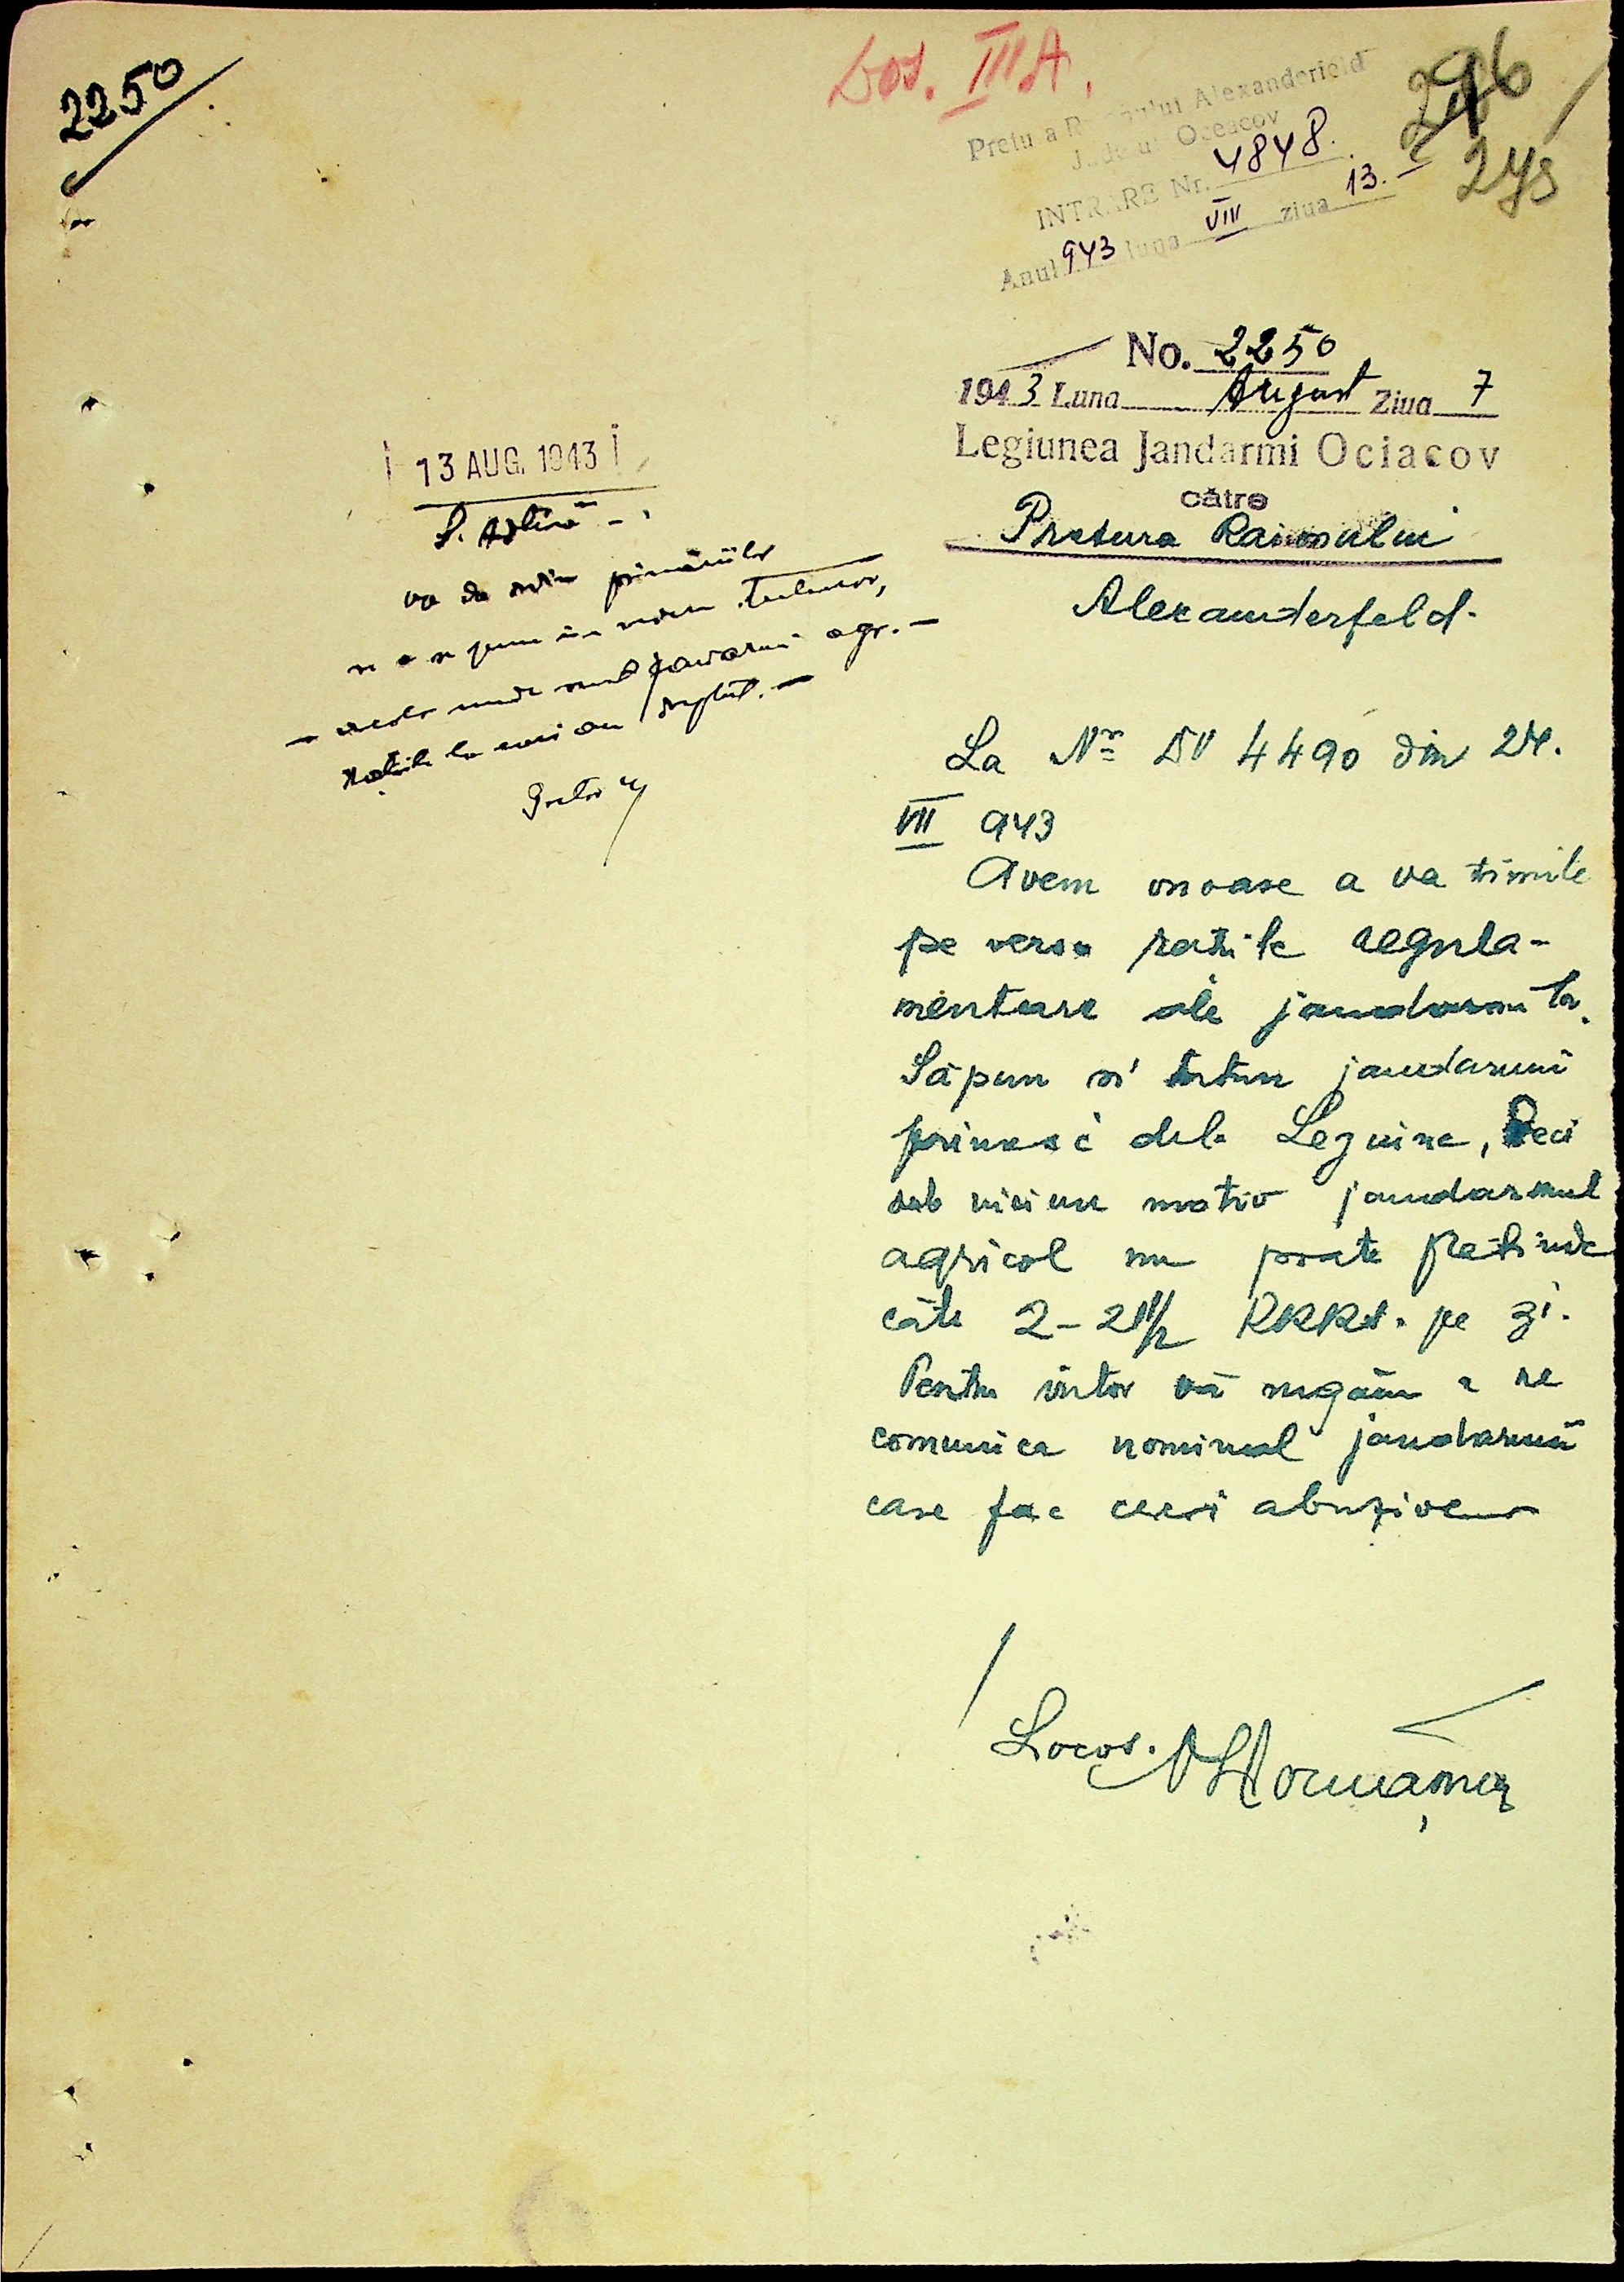 2250
Dos. III A.
296
245
Pretura Raionului Alexanderfeld
Județul Oceacov
INTRARE Nr. 4848.
Anul 943 luna VIII ziua 13.
No. 2250
1943 Luna August Ziua 7
Legiunea Jandarmi Ociacov
către
Pretura Raionului
Alexanderfeld.
13 AUG. 1943
S. Adtivă - .
va da primăriilor
tuturor,
- acolo unde sunt jandarmi agr. -
rațiile la care au dreptul. -
Pretor
La Nr DV 4490 din 24.
VII 943
Avem onoare a va trimite
pe verso rațiile regula-
mentare ale jandarmilor.
Săpun si tutun jandarmii
primesc dela Legiune, Deci
sub nici un motiv jandarmul
agricol nu poate pretinde
câte 2-2 1/2 RKKS. pe zi.
Pentru viitor vă rugăm a ne
comunica nominal jandarmii
care fac cereri abuzive
Locot.